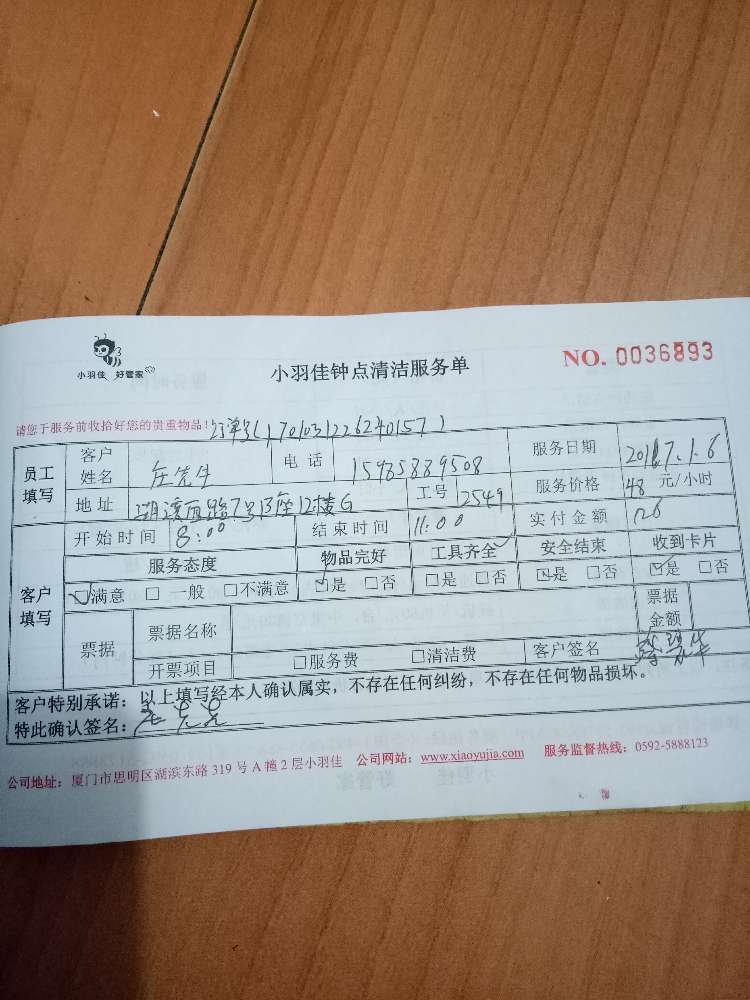 小羽佳 好管家
小羽佳钟点清洁服务单
NO. 0036893
请您于服务前收拾好您的贵重物品！订单号(1701031226240157)
员工填写 客户姓名 庄先生 电话 15985889508 服务日期 2017.1.6
地址 湖滨西路7号B座12楼G 工号 2549 服务价格 48 元/小时
客户填写 开始时间 8:00 结束时间 11:00 实付金额
服务态度 物品完好 工具齐全 安全结束 收到卡片
☑满意 □ 一般 □不满意 ☑是 □否 □是 □否 ☑是 □否 ☑是 □否
票据 票据名称 票据金额
开票项目 □服务费 □清洁费 客户签名
客户特别承诺：以上填写经本人确认属实，不存在任何纠纷，不存在任何物品损坏。
特此确认签名：
公司地址：厦门市思明区湖滨东路 319 号 A 幢 2 层小羽佳 公司网站：www.xiaoyujia.com 服务监督热线：0592-5888123